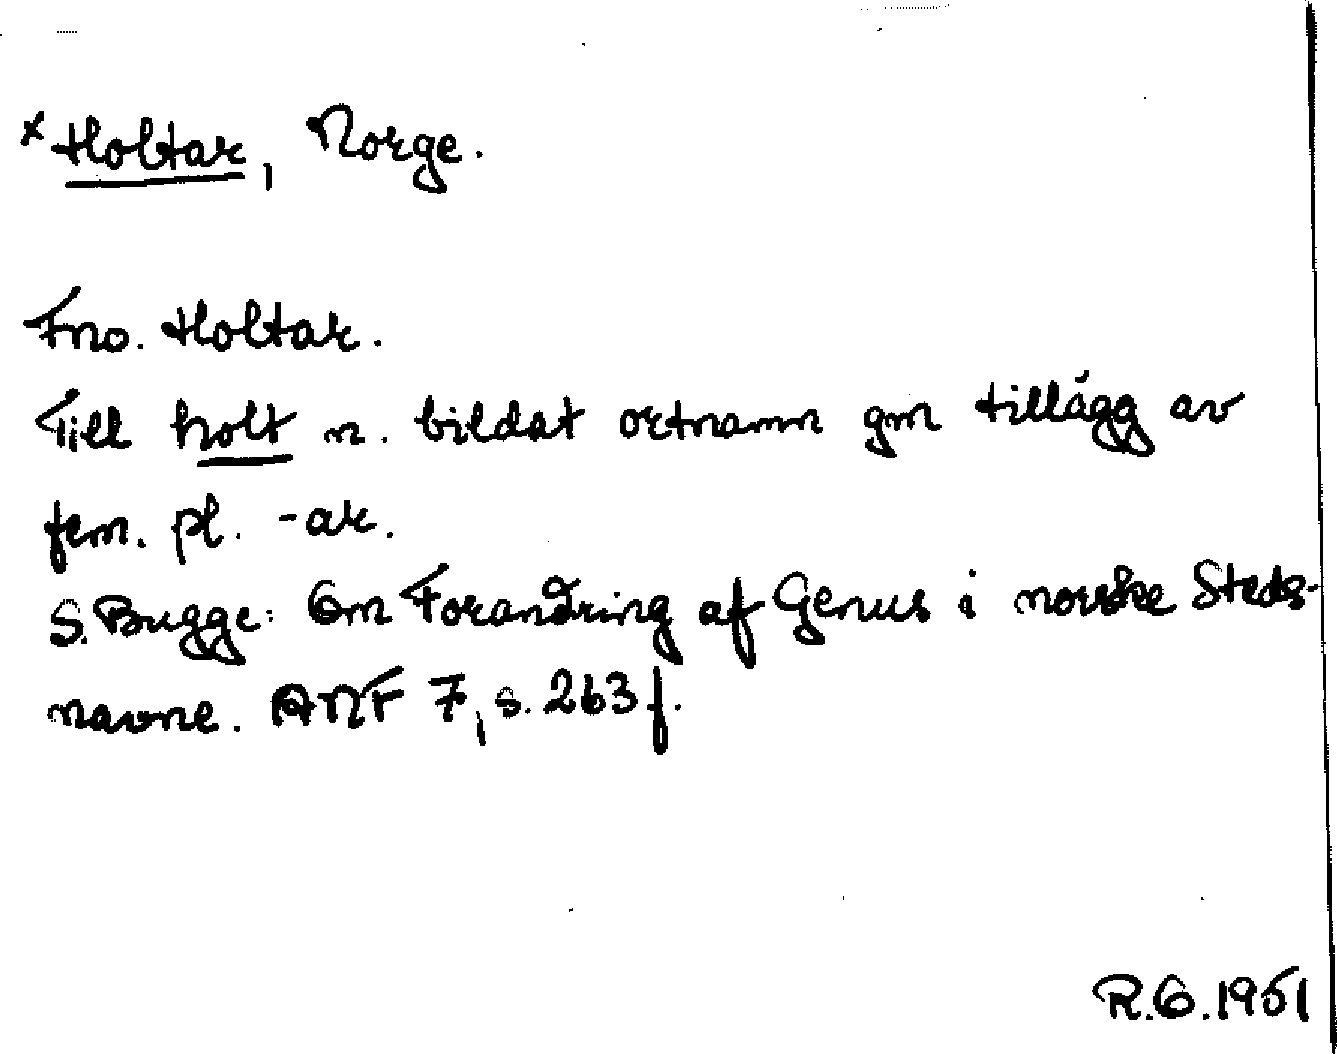 × Holtar, Norge.
Fno. Holtar.
Till holt n. bildat ortnamn gm tillägg av
fem. pl. -ar.
S. Bugge: Om Forandring af Genus i norske Steds-
navne. ANF 7, s. 263 f.
R.G. 1951